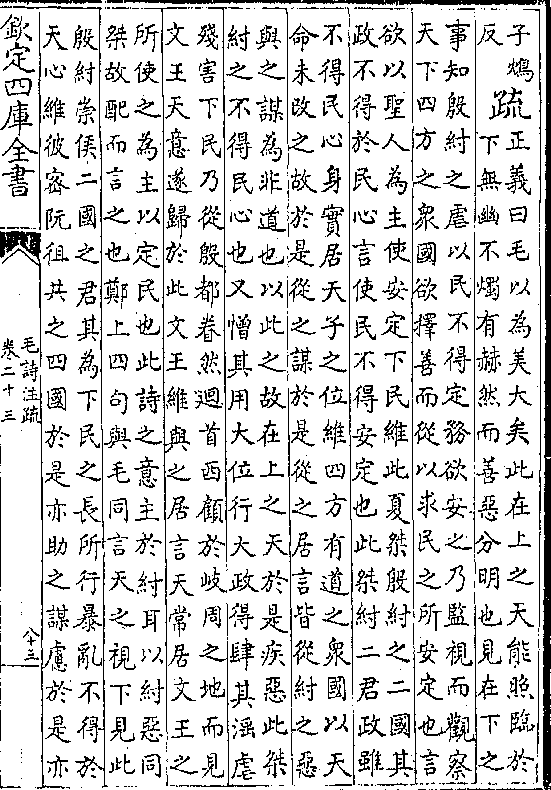 子鴆反疏正義曰毛以為美大矣此在上之天能照臨於
下無幽不燭有赫然而善惡分明也見在下之
事知殷紂之虐以民不得定務欲安之乃監視而觀察
天下四方之衆國欲擇善而從以求民之所安定也言
欲以聖人為主使安定下民維此夏桀殷紂之二國其
政不得於民心言使民不得安定也此桀紂二君政雖
不得民心身實居天子之位維四方有道之衆國以天
命未改之故於是從之謀於是從之居言皆從紂之惡
與之謀為非道也以此之故在上之天於是疾惡此桀
紂之不得民心也又憎其用大位行大政得肆其淫虐
殘害下民乃從殷都眷然迴首西顧於岐周之地而見
文王天意遂歸於此文王維與之居言天常居文王之
所使之為主以定民也此詩之意主於紂耳以紂惡同
桀故配而言之也鄭上四句與毛同言天之視下見此
殷紂崇侯二國之君其為下民之長所行暴亂不得於
天心維彼密阮徂共之四國於是亦助之謀慮於是亦
欽定四庫全書
毛詩注疏
卷二十三
八十三